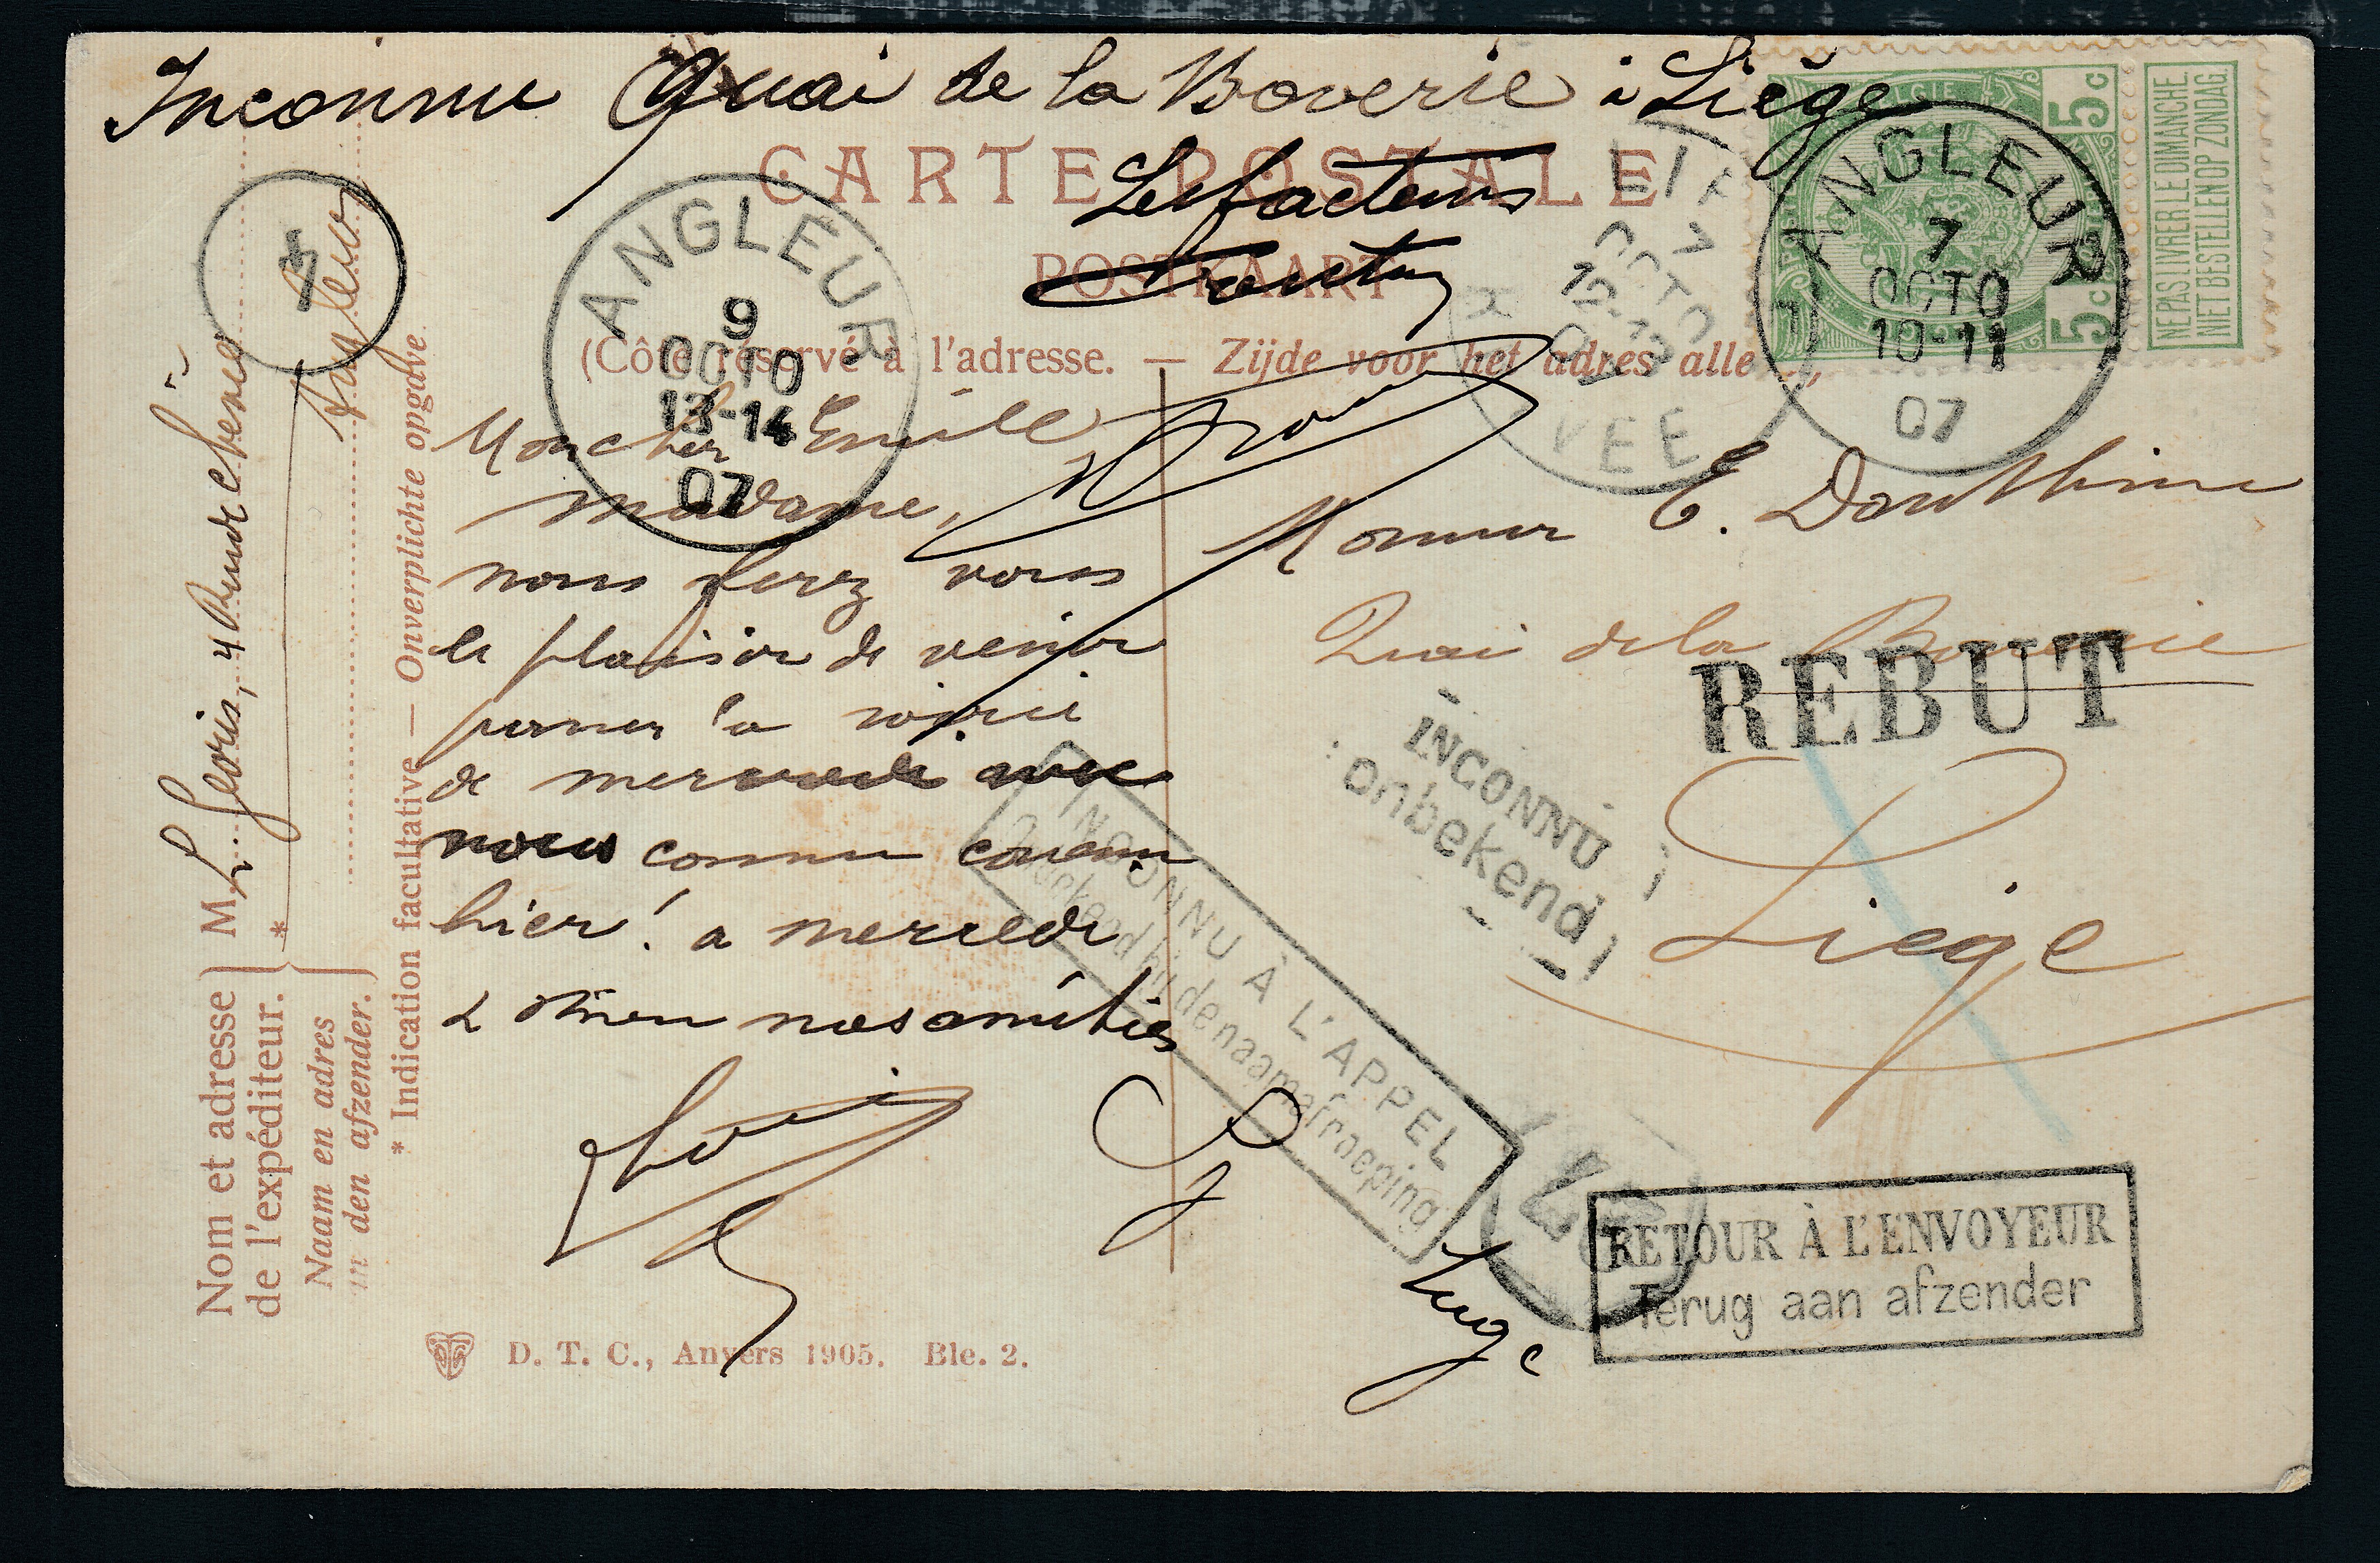 Inconnu Quai de la Boverie à Liége
Les facteurs
CARTE POSTALE
POSTKAART
(Côté réservé à l'adresse. — Zijde voor het adres alle
BELGIE
5 c
5 c
NE PAS LIVRER LE DIMANCHE.
NIET BESTELLEN OP ZONDAG.
ANGLEUR
7
OCTO
10-11
07
ANGLEUR
9
OCTO
13-14
07
7
OCTO
VEE
4
Mon cher Emile
Madame,
nous ferez vous
le plaisir de venir
passer la soirée
de mercredi avec
nous comme convenu
hier! a mercredi
nos amitiés
Monsieur E.
Quai de la Boverie
Liége
REBUT
INCONNU
onbekend
INCONNU À L'APPEL
Onbekend bij de naamafroeping
RETOUR À L'ENVOYEUR
Terug aan afzender
Nom et adresse
de l'expéditeur.
Naam en adres
den afzender.
M L Gevris, 4 Rue
Angleur
*
* Indication facultative — Onverplichte opgave.
D. T. C., Anvers 1905. Ble. 2.